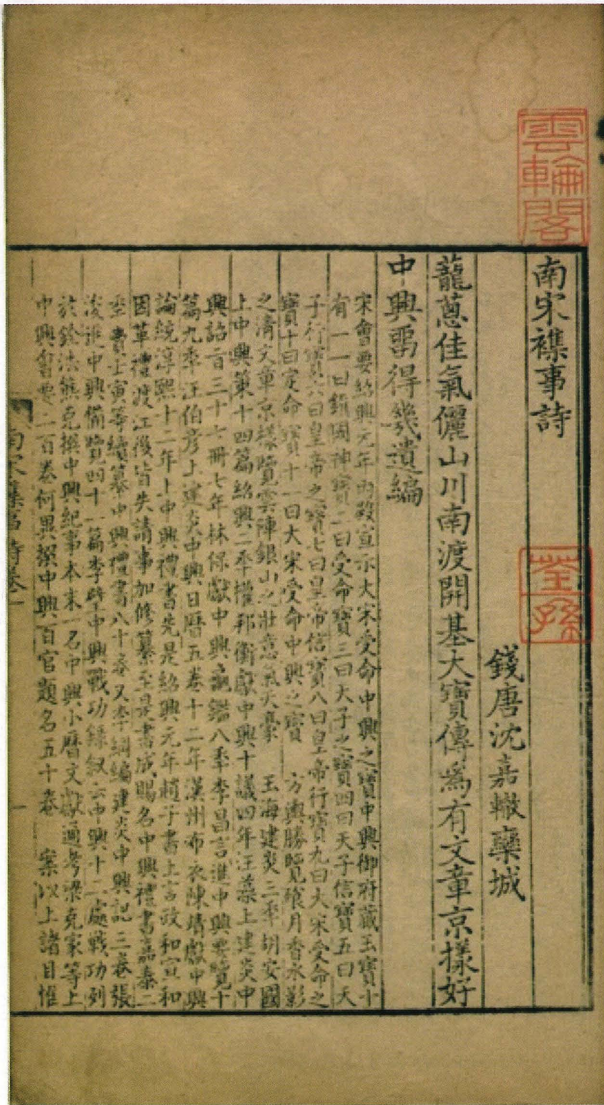 雲輪閣
南宋襍事詩
荃孫
錢唐沈嘉轍欒城
龍蔥佳氣儷山川南渡開基大寶傳爲有文章京樣好
中興畱得幾遺編
宋會要紹興元年內殿宣示大宋受命中興之寶中興御府藏玉寶十
有一一曰鎮國神寶二曰受命寶三曰天子之寶四曰天子信寶五曰天
子行寶六曰皇帝之寶七曰皇帝信寶八曰皇帝行寶九曰大宋受命之
寶十曰定命寶十一曰大宋受命中興之寶　方輿勝覽殘月香水影
之清文章京樣覽雲陣銀山之壯意氣天豪　玉海建炎三年胡安國
上中興策十四篇紹興二年權邦獻中興十議四年汪藻上建炎中
興詔百三十七冊七年林保獻中興龜鑑八年李昌言進中興要覽十
篇九年汪伯彥上建炎中興日曆五卷十二年漢州布衣陳靖獻中興
論統淳熙十二年上中興禮書先是紹興元年趙子書上言政和宣和
因革禮渡江後皆失請事加修纂至是書成賜名中興禮書嘉泰二
年費士寅等續纂中興禮書八十卷又李綱編建炎中興記三卷張
浚進中興備覽四十一篇李壁中興戰功錄叙云中興十三處戰功列
於銓法熊克撰中興紀事本末一名中興小曆文獻通考梁克家等上
中興會要二百卷何異撰中興百官題名五十卷　案以上諸目惟
南宋襍事詩卷一
一